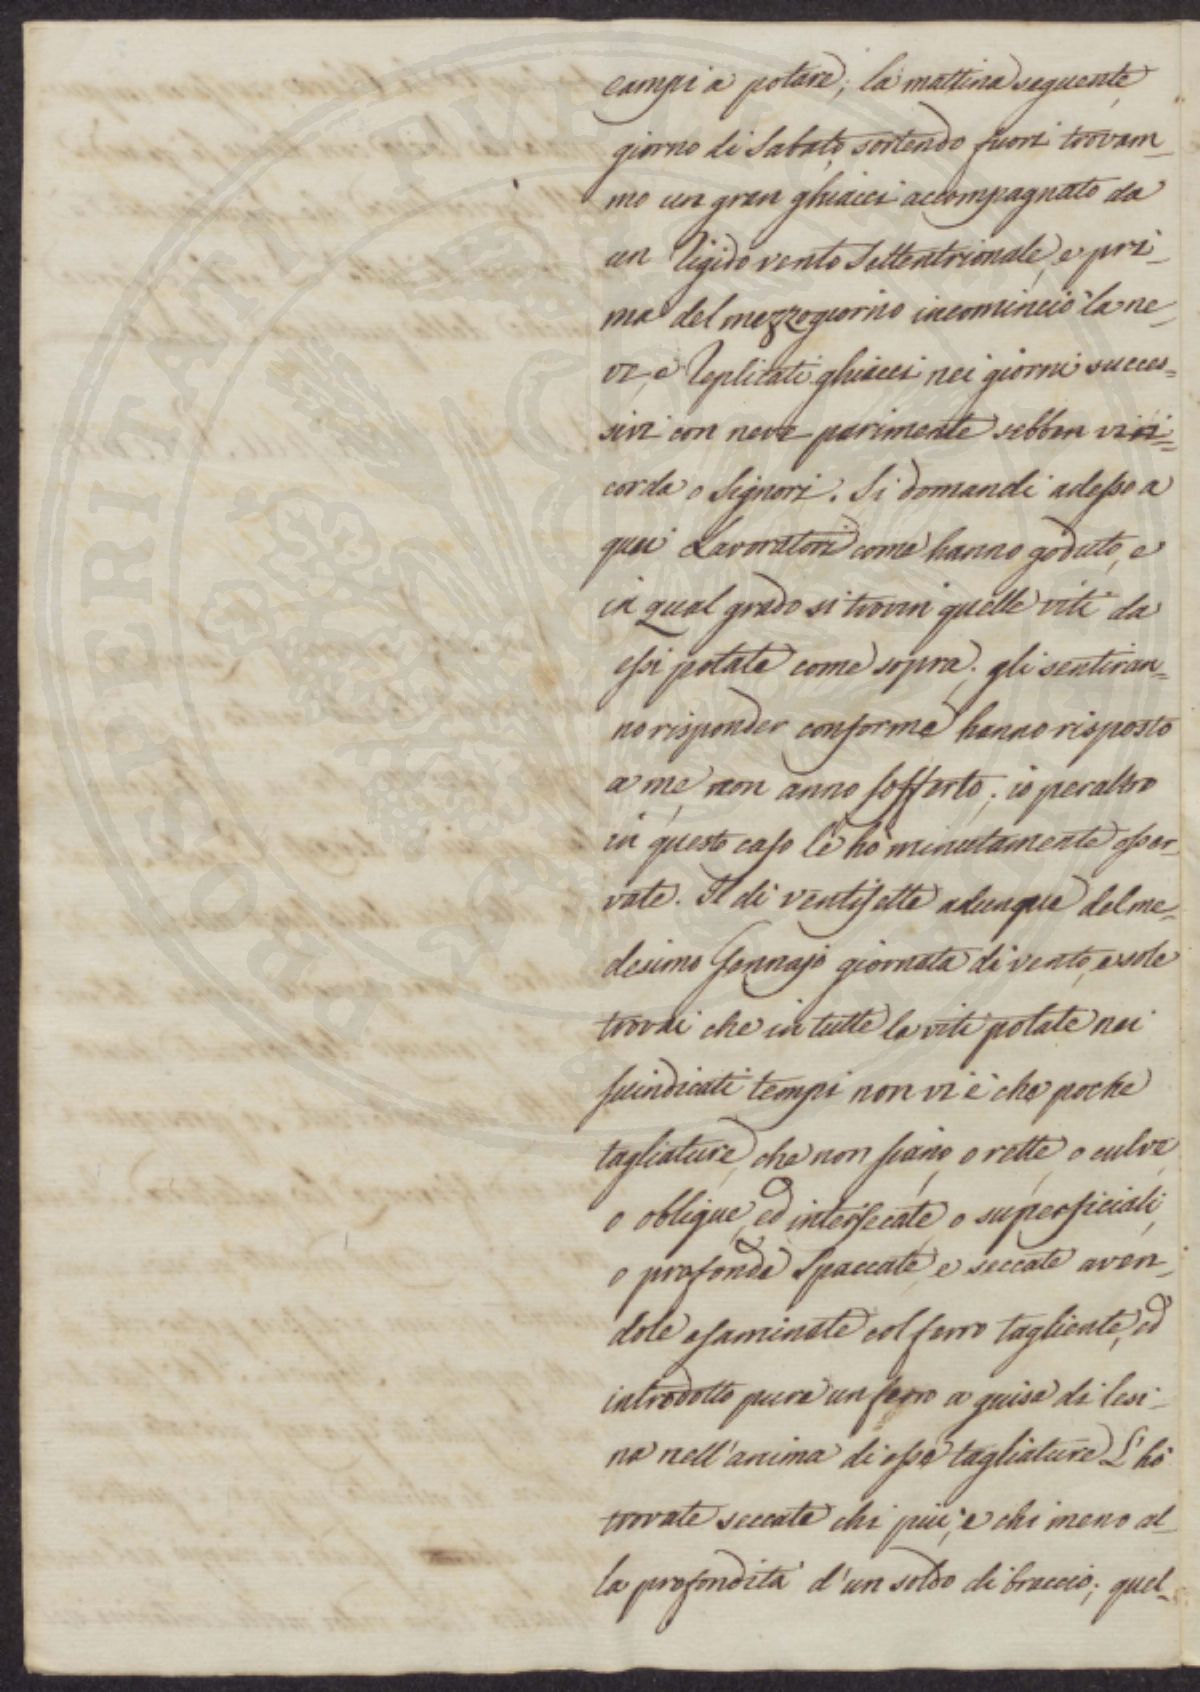 campi a potare; la mattina seguente
giorno di Sabato sortendo fuori trovam-
mo un gran ghiacci accompagnato da
un Rigido vento Settentrionale, e pri-
ma del mezzogiorno incominciò la ne-
ve, e Replicati ghiacci nei giorni succes=
sivi con neve parimente sebben vi ri=
corda o Signori. Si domandi adesso a
quei Lavoratori come hanno goduto, e
in qual grado si trovin quelle viti da
essi potate come sopra; gli sentiran=
no risponder conforme hanno risposto
a me, non anno sofferto; io peraltro
in questo caso le hò minutamente osser-
vate. Il di ventisette adunque del me-
desimo Gennajo giornata di vento, e sole
trovai che in tutte le viti potate nei
suindicati tempi non vi è che poche
tagliature, che non siano, o rette o culve
o oblique, ed intersecate o superficiali,
o profonde Spaccate, e seccate aven-
dole esaminate col ferro tagliente, ed
introdotto pure un ferro a guisa di lesi-
na nell'anima di esse tagliature L'hò
trovate seccate chi più, e chi meno al-
la profondità d'un soldo di braccio; quel-
PROSPERITATI PVBLICAE